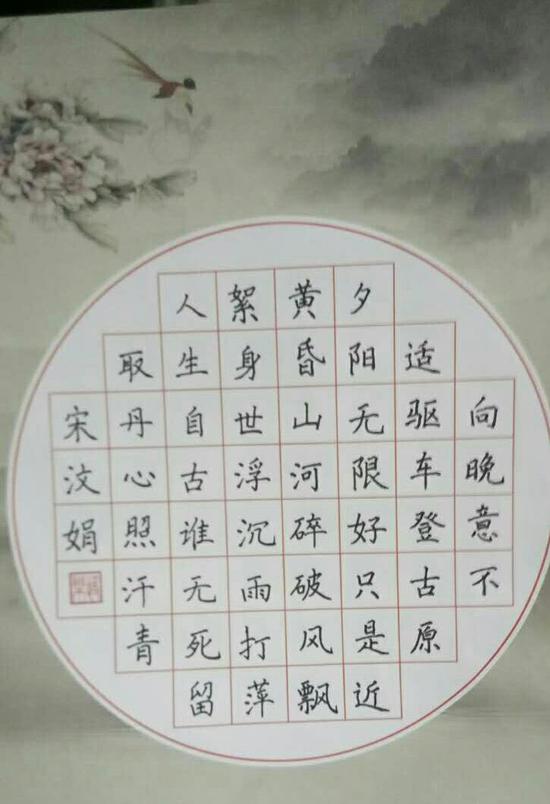 向晚意不
适驱车登古原
夕阳无限好只是近
黄昏山河碎破风飘
絮身世浮沉雨打萍
人生自古谁无死留
取丹心照汗青
宋汶娟